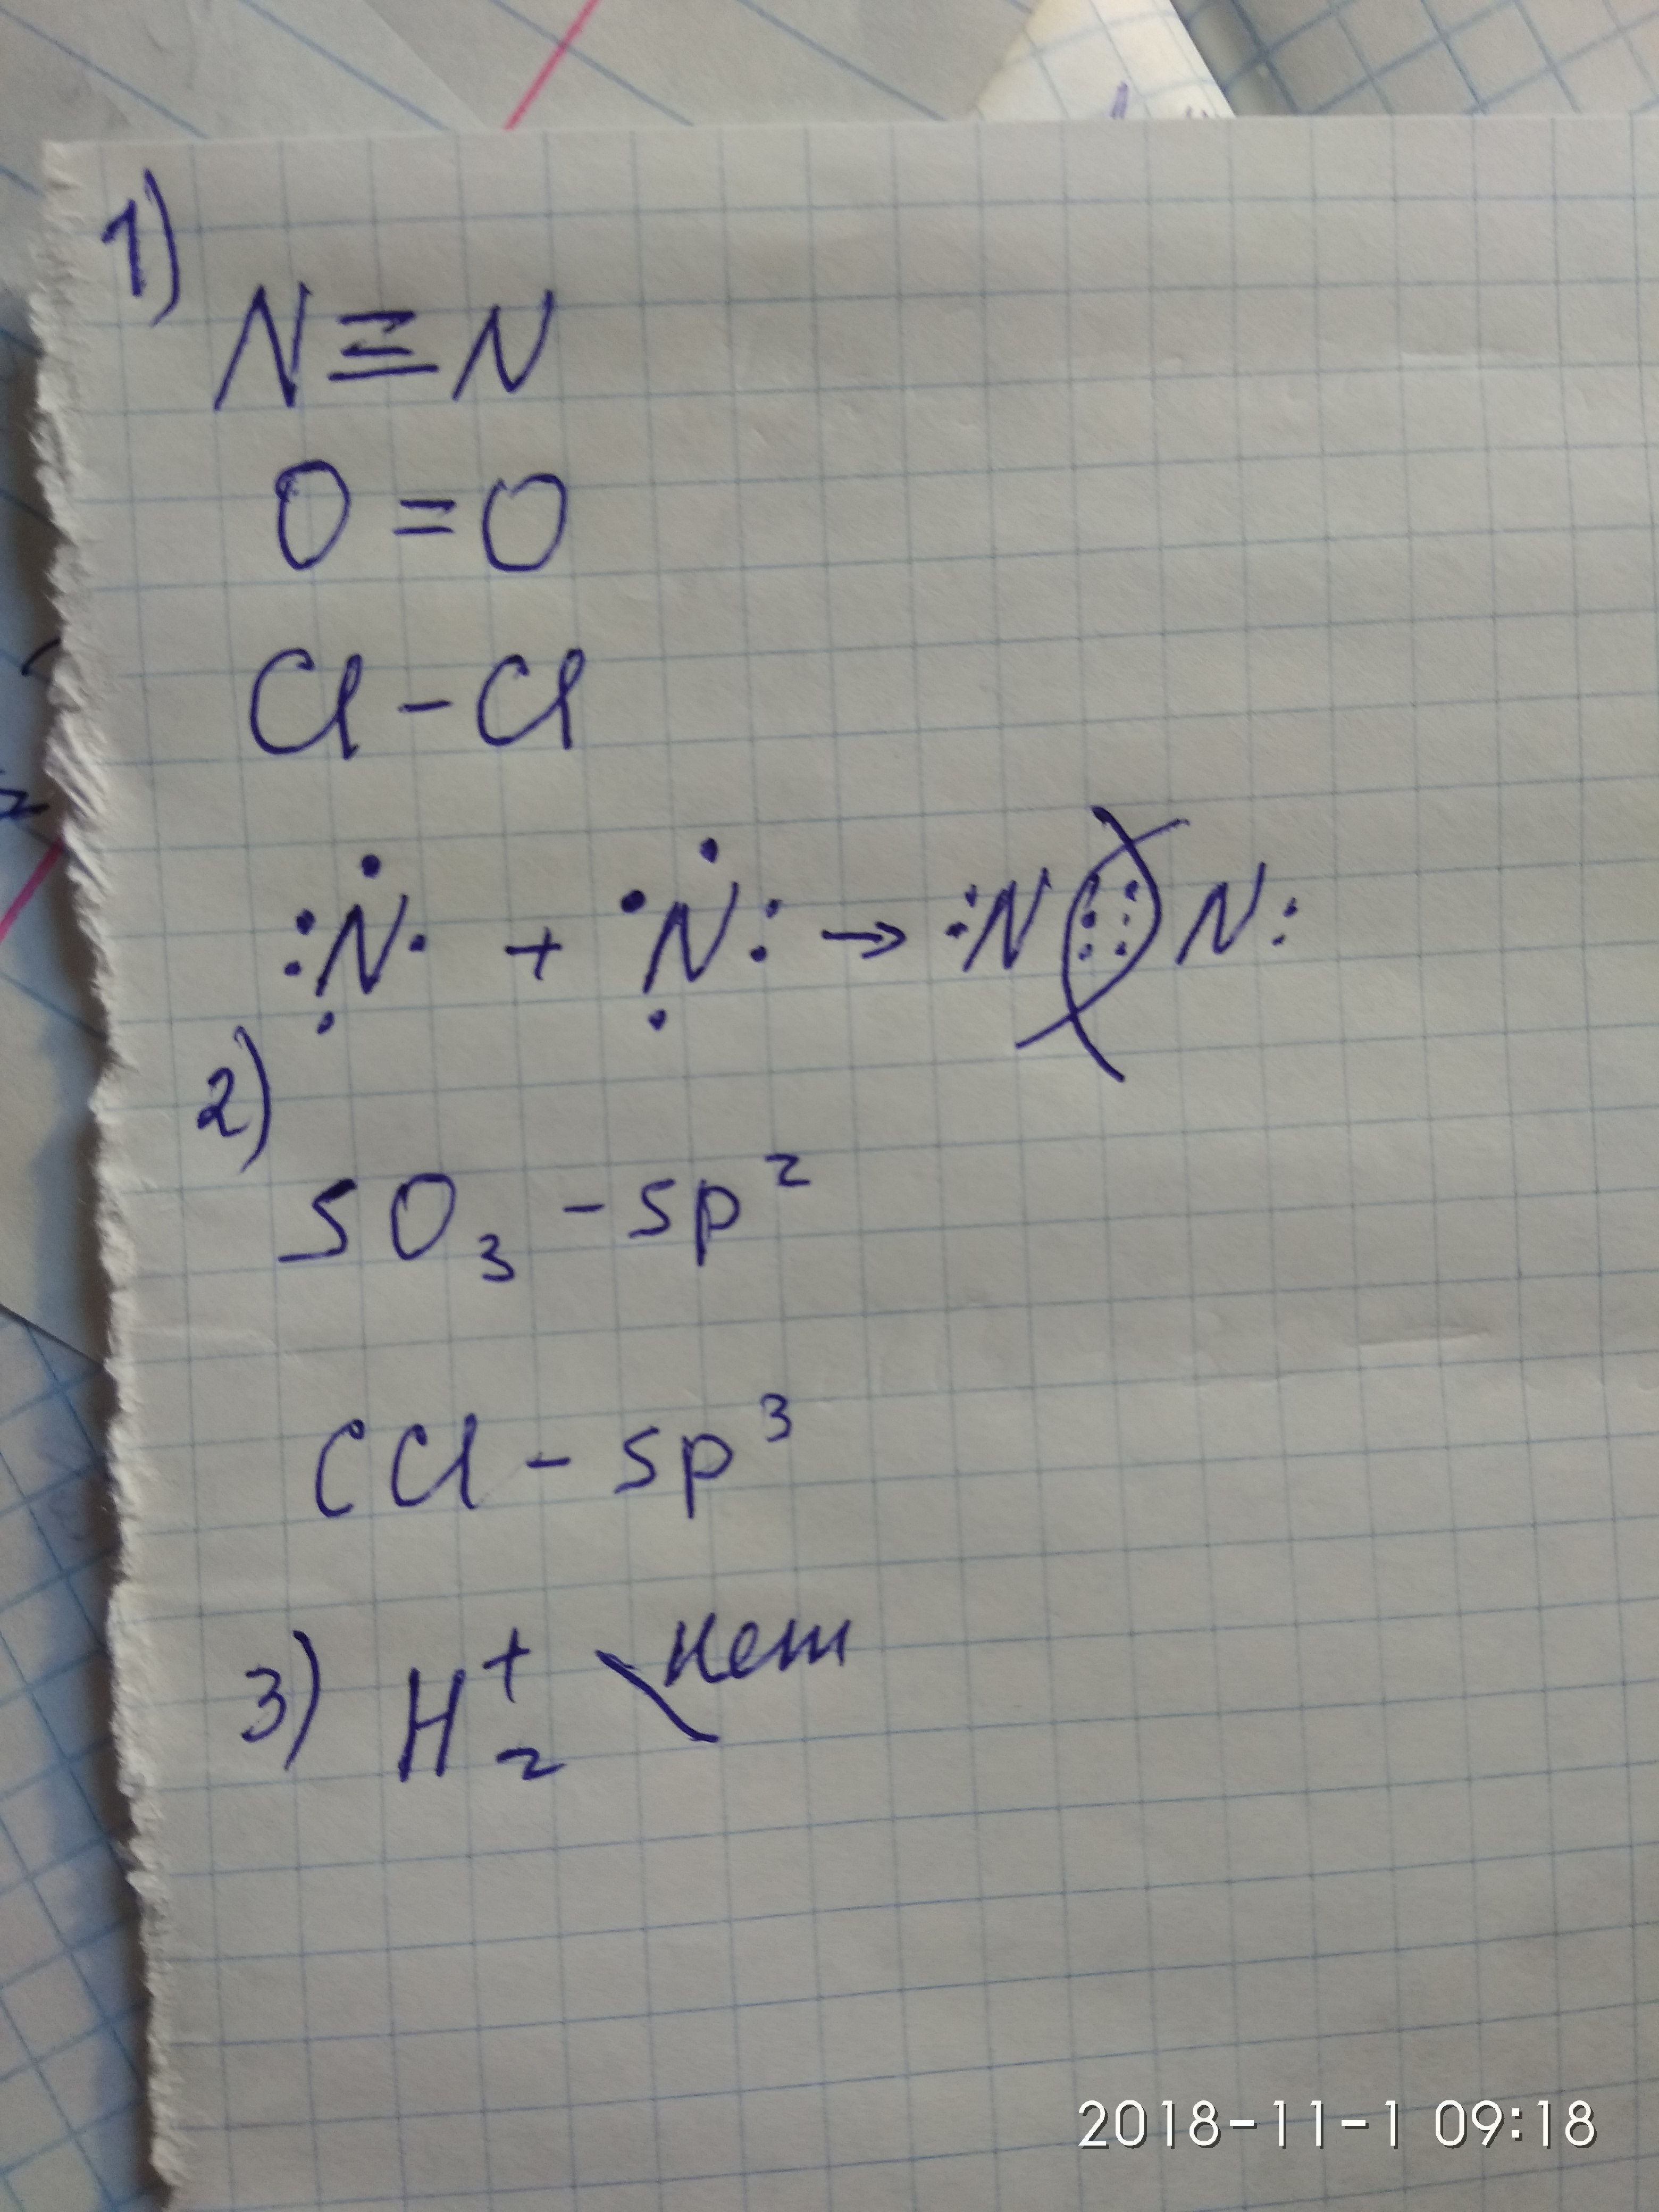 1)
N≡N
O=O
Cl-Cl
:N· + ·N: → :N⋮⋮N:
2)
SO₃ - sp²
CCl - sp³
3) H₂⁺ нет
2018-11-1 09:18